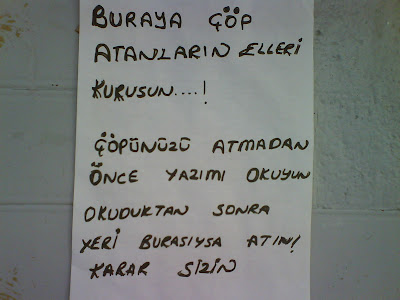 BURAYA ÇÖP
ATANLARIN ELLERİ
KURUSUN....!
ÇÖPÜNÜZÜ ATMADAN
ÖNCE YAZIMI OKUYUN
OKUDUKTAN SONRA
YERİ BURASIYSA ATIN!
KARAR SİZİN